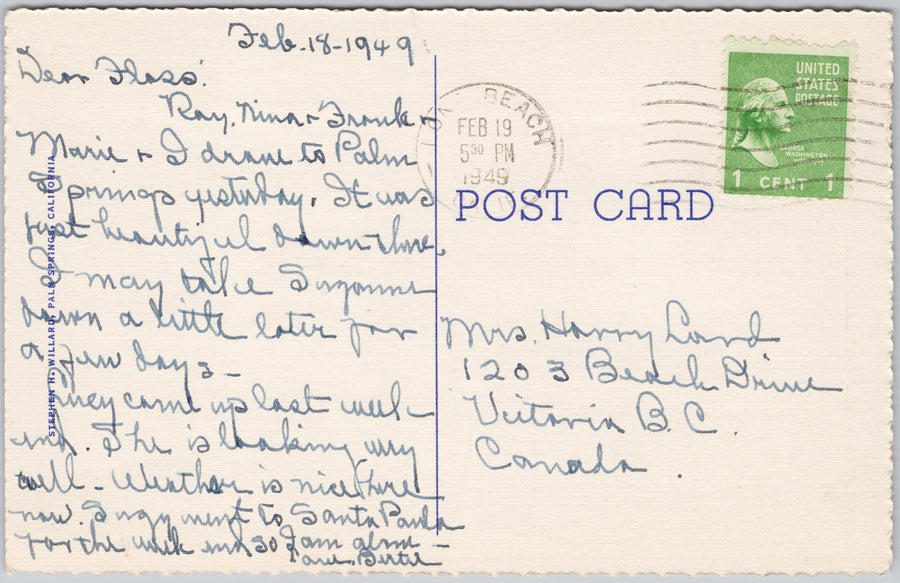 Feb-18-1949
Dear Floss'
Ray, Nina + Frank +
Marie + I drove to Palm
Springs yesterday. It was
just beautiful down there.
I may take Suzanne
down a little later for
a few days -
They came up last week
end. She is looking very
well - Weather is nice here
now. Suzy went to Santa Paula
for the week end so I am alone -
Love Bertie
STEPHEN H. WILLARD, PALM SPRINGS, CALIFORNIA
LONG BEACH
FEB 19
5 30 PM
1949
CALIF
UNITED
STATES
POSTAGE
GEORGE
WASHINGTON
1 CENT 1
POST CARD
Mrs. Harry Card
1203 Beach Drive
Victoria B.C.
Canada.